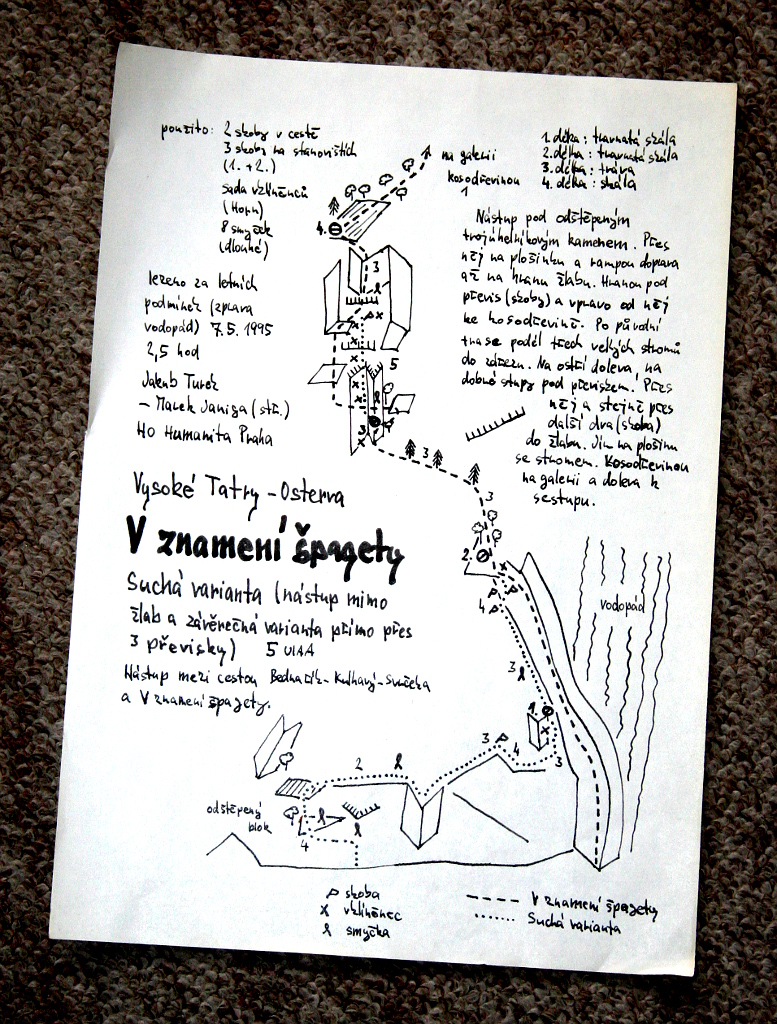 použito: 2 skoby v cestě
3 skoby na stanovištích
(1. + 2.)
sada vklíněnců
(Horn)
8 smyček
(dlouhé)
lezeno za letních
podmínek (zprava
vodopád) 7.5.1995
2,5 hod
Jakub Turek
– Marek Janiga (stř.)
HO Humanita Praha
na galerii
kosodřevinou
1
1. délka: travnatá skála
2. délka: travnatá skála
3. délka: tráva
4. délka: skála
Nástup pod odštěpeným
trojúhelníkovým kamenem. Přes
něj na plošinku a rampou doprava
až na hranu žlabu. Hranou pod
převis (skoby) a vpravo od něj
ke kosodřevině. Po původní
trase podél třech velkých stromů
do zářezu. Na ostří doleva, na
dobré stupy pod převisem. Přes
něj a stejně přes
další dva (skoba)
do žlabu. Jím na plošinu
se stromem. Kosodřevinou
na galerii a doleva k
sestupu.
4.
3
5
3
3
3
Vysoké Tatry – Osterva
V znamení špagety
Suchá varianta (nástup mimo
žlab a závěrečná varianta přímo přes
3 převisky) 5 UIAA
Nástup mezi cestou Bednařík-Kulhavý-Svačeka
a V znamení špagety.
2.
4
vodopád
3
1.
3
4
3
2
odštěpený
blok
4
skoba
vklíněnec
smyčka
V znamení špagety
Suchá varianta